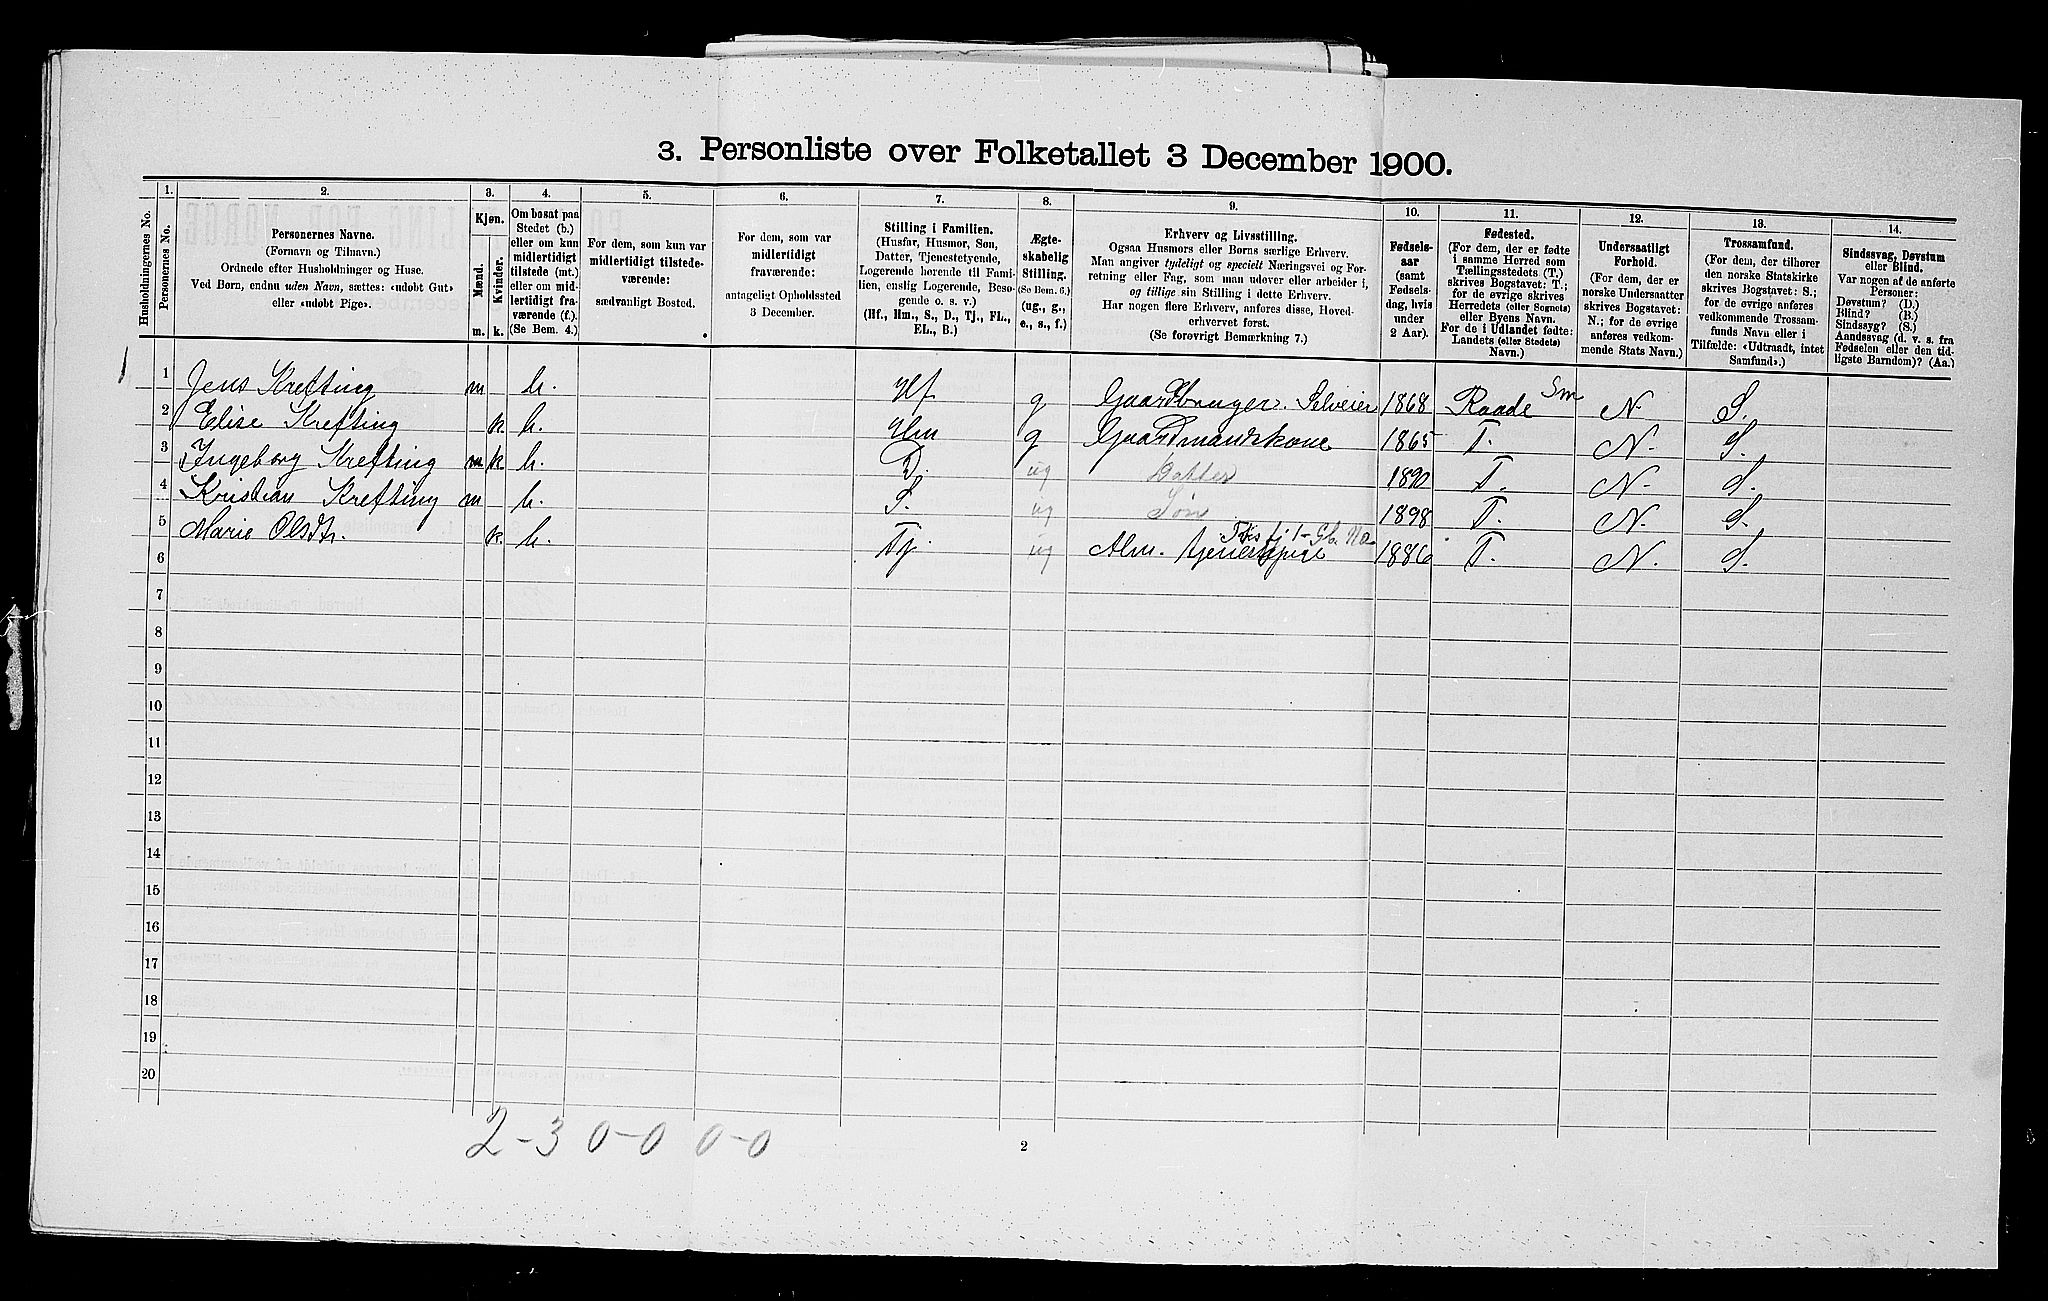 3. Personliste over Folketallet 3 December 1900.
Husholdningernes No.
1.
Personernes No.
2.
Personernes Navne.
(Fornavn og Tilnavn.)
Ordnede efter Husholdninger og Huse.
Ved Børn, endnu uden Navn, sættes: «udøbt Gut»
eller «udøbt Pige».
3.
Kjøn.
Mænd.
Kvinder.
m.
k.
4.
Om bosat paa
Stedet (b.)
eller om kun
midlertidigt
tilstede (mt.)
eller om mid-
lertidigt fra-
værende (f.).
(Se Bem. 4.)
5.
For dem, som kun var
midlertidigt tilstede-
værende:
sædvanligt Bosted.
6.
For dem, som var
midlertidigt
fraværende:
antageligt Opholdssted
3 December.
7.
Stilling i Familien.
(Husfar, Husmor, Søn,
Datter, Tjenestetyende,
Logerende hørende til Fami-
lien, enslig Logerende, Besø-
gende o. s. v.)
(Hf., Hm., S., D., Tj., FL.,
EL., B.)
8.
Ægte-
skabelig
Stilling.
(Se Bem. 6.)
(ug., g.,
e., s., f.)
9.
Erhverv og Livsstilling.
Ogsaa Husmors eller Børns særlige Erhverv.
Man angiver tydeligt og specielt Næringsvei og For-
retning eller Fag, som man udøver eller arbeider i,
og tillige sin Stilling i dette Erhverv.
Har nogen flere Erhverv, anføres disse, Hoved-
erhvervet først.
(Se forøvrigt Bemærkning 7.)
10.
Fødsels-
aar
(samt
Fødsels-
dag, hvis
under
2 Aar).
11.
Fødested.
(For dem, der er fødte
i samme Herred som
Tællingsstedets (T.)
skrives Bogstavet: T.;
for de øvrige skrives
Herredets (eller Sognets)
eller Byens Navn.
For de i Udlandet fødte:
Landets (eller Stedets)
Navn.)
12.
Undersaatligt
Forhold.
(For dem, der er
norske Undersaatter
skrives Bogstavet:
N.; for de øvrige
anføres vedkom-
mende Stats Navn.)
13.
Trossamfund.
(For dem, der tilhører
den norske Statskirke
skrives Bogstavet: S.;
for de øvrige anføres
vedkommende Trossam-
funds Navn eller i
Tilfælde: «Udtraadt, intet
Samfund».)
14.
Sindssvag, Døvstum
eller Blind.
Var nogen af de anførte
Personer:
Døvstum? (D.)
Blind? (B.)
Sindssyg? (S.)
Aandssvag (d. v. s. fra
Fødselen eller den tid-
ligste Barndom)? (Aa.)
1 1 Jens Krefting m b. Hf g Gaardbruger. Selveier 1868 Raade Sm N. S.
2 Elise Krefting k. b. Hm g Gaardmandskone 1865 T. N. S.
3 Ingeborg Krefting m k. b. D. ug Datter 1890 T. N. S.
4 Kristian Krefting m b. S. ug Søn 1898 T. N. S.
5 Marie Olsdtr. k. b. Tj. ug Alm. tjenestpige 1886 T. N. S.
6
7
8
9
10
11
12
13
14
15
16
17
18
19
20
2-3 0-0 0-0
2